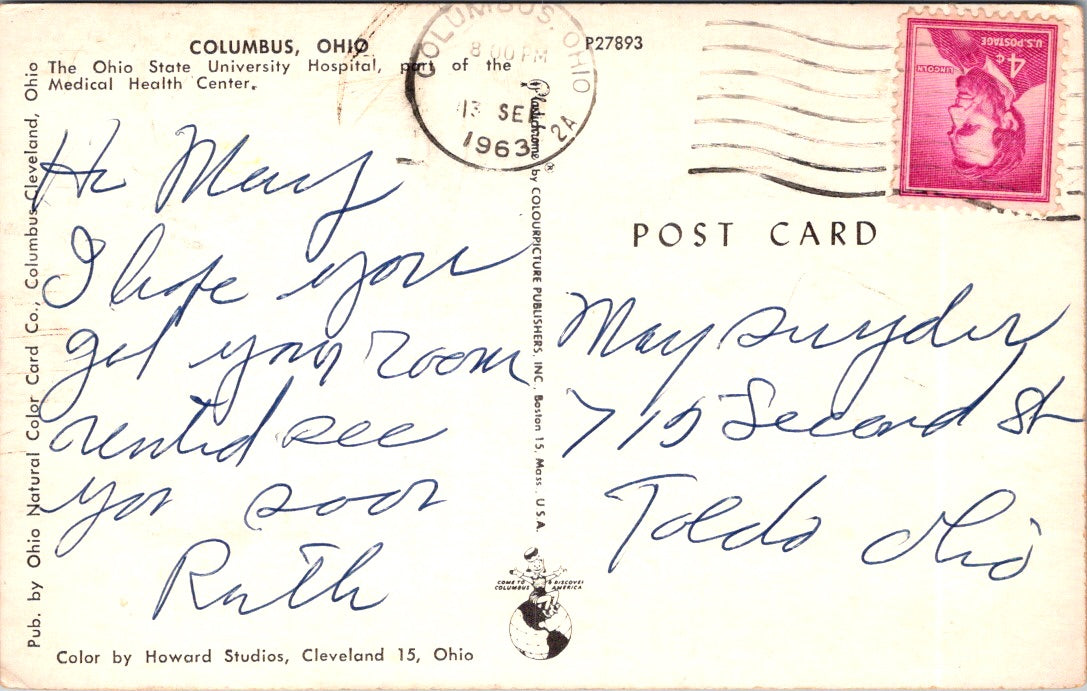 COLUMBUS, OHIO
The Ohio State University Hospital, part of the
Medical Health Center.
P27893
COLUMBUS, OHIO
8 00 PM
13 SEP
1963
2A
U.S. POSTAGE
4¢
LINCOLN
POST CARD
Hi Mary
I hope you
got your room
rented see
you soon
Ruth
May Snyder
715 Second St
Toledo Ohio
Pub. by Ohio Natural Color Card Co., Columbus-Cleveland, Ohio
Plastichrome ® by COLOURPICTURE PUBLISHERS, INC., Boston 15, Mass., U.S.A.
COME TO COLUMBUS & DISCOVER AMERICA
Color by Howard Studios, Cleveland 15, Ohio